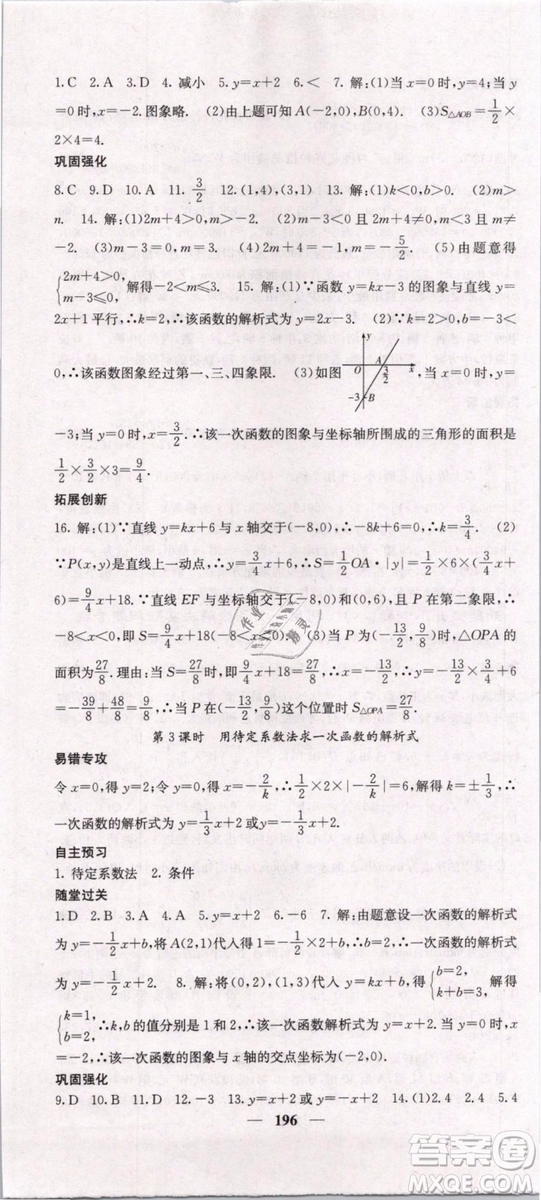 1.C 2.A 3.D 4.减小 5.y=x+2 6.< 7.解:(1)当x=0时,y=4;当y=0时,x=-2.图象略. (2)由上题可知A(-2,0),B(0,4). (3)S△AOB=1/2×
2×4=4.
巩固强化
8.C 9.D 10.A 11.3/2 12.(1,4),(3,1) 13.(1)k<0,b>0. (2)m>
n. 14.解:(1)2m+4>0,m>-2. (2)2m+4<0且m-3<0,m<
-2. (3)m-3=0,m=3. (4)2m+4=-1,m=-5/2. (5)由题意得
{2m+4>0, m-3≤0, 解得-2<m≤3. 15.解:(1)∵函数y=kx-3的图象与直线y=
2x+1平行,∴k=2,∴该函数的解析式为y=2x-3. (2)∵k=2>0,-3<
0,∴该函数图象经过第一、三、四象限. (3)如图
y A O 3/2 x -3 B
-3;当y=0时,x=3/2.∴该一次函数的图象与坐标轴所围成的三角形的面积是
1/2×3/2×3=9/4.
拓展创新
16.解:(1)∵直线y=kx+6与x轴交于(-8,0),∴0=-8k+6,∴k=3/4. (2)
∵P(x,y)是直线上一动点,∴y=3/4x+6,∴S=1/2OA·|y|=1/2×6×(3/4x
+6)=9/4x+18.∵直线EF与坐标轴交于(-8,0)和(0,6),且P在第二象限,∴
-8<x<0,∴S=9/4x+18(-8<x<0). (3)当P为(-13/2,9/8)时,△OPA的
面积为27/8.理由:当S=27/8时,则9/4x+18=27/8,∴x=-13/2,∴y=3/4x+6=
-39/8+48/8=9/8,∴当P在(-13/2,9/8)这个位置时S△OPA=27/8.
第3课时 用待定系数法求一次函数的解析式
易错专攻
令x=0,得y=2;令y=0,得x=-2/k,∴1/2×2×|-2/k|=6,解得k=±1/3,∴
一次函数的解析式为y=1/3x+2或y=-1/3x+2.
自主预习
1.待定系数法 2.条件
随堂过关
1.D 2.B 3.A 4.A 5.y=x+2 6.-6 7.解:由题意设一次函数的解析式
为y=-1/2x+b,将A(2,1)代人得1=-1/2×2+b,∴b=2,∴一次函数的解析式
为y=-1/2x+2. 8.解:将(0,2),(1,3)代人y=kx+b,得{b=2, k+b=3, 解得
{k=1, b=2, ∴k,b的值分别是1和2,∴一次函数解析式为y=x+2.当y=0时,x=
-2,∴该一次函数的图象与x轴的交点坐标为(-2,0).
巩固强化
9.D 10.B 11.D 12.-3 13.y=x+2或y=-x+2 14.(1)2.4 (2)2.4 5.4
196
作业精灵
答案圈
MXQE.COM